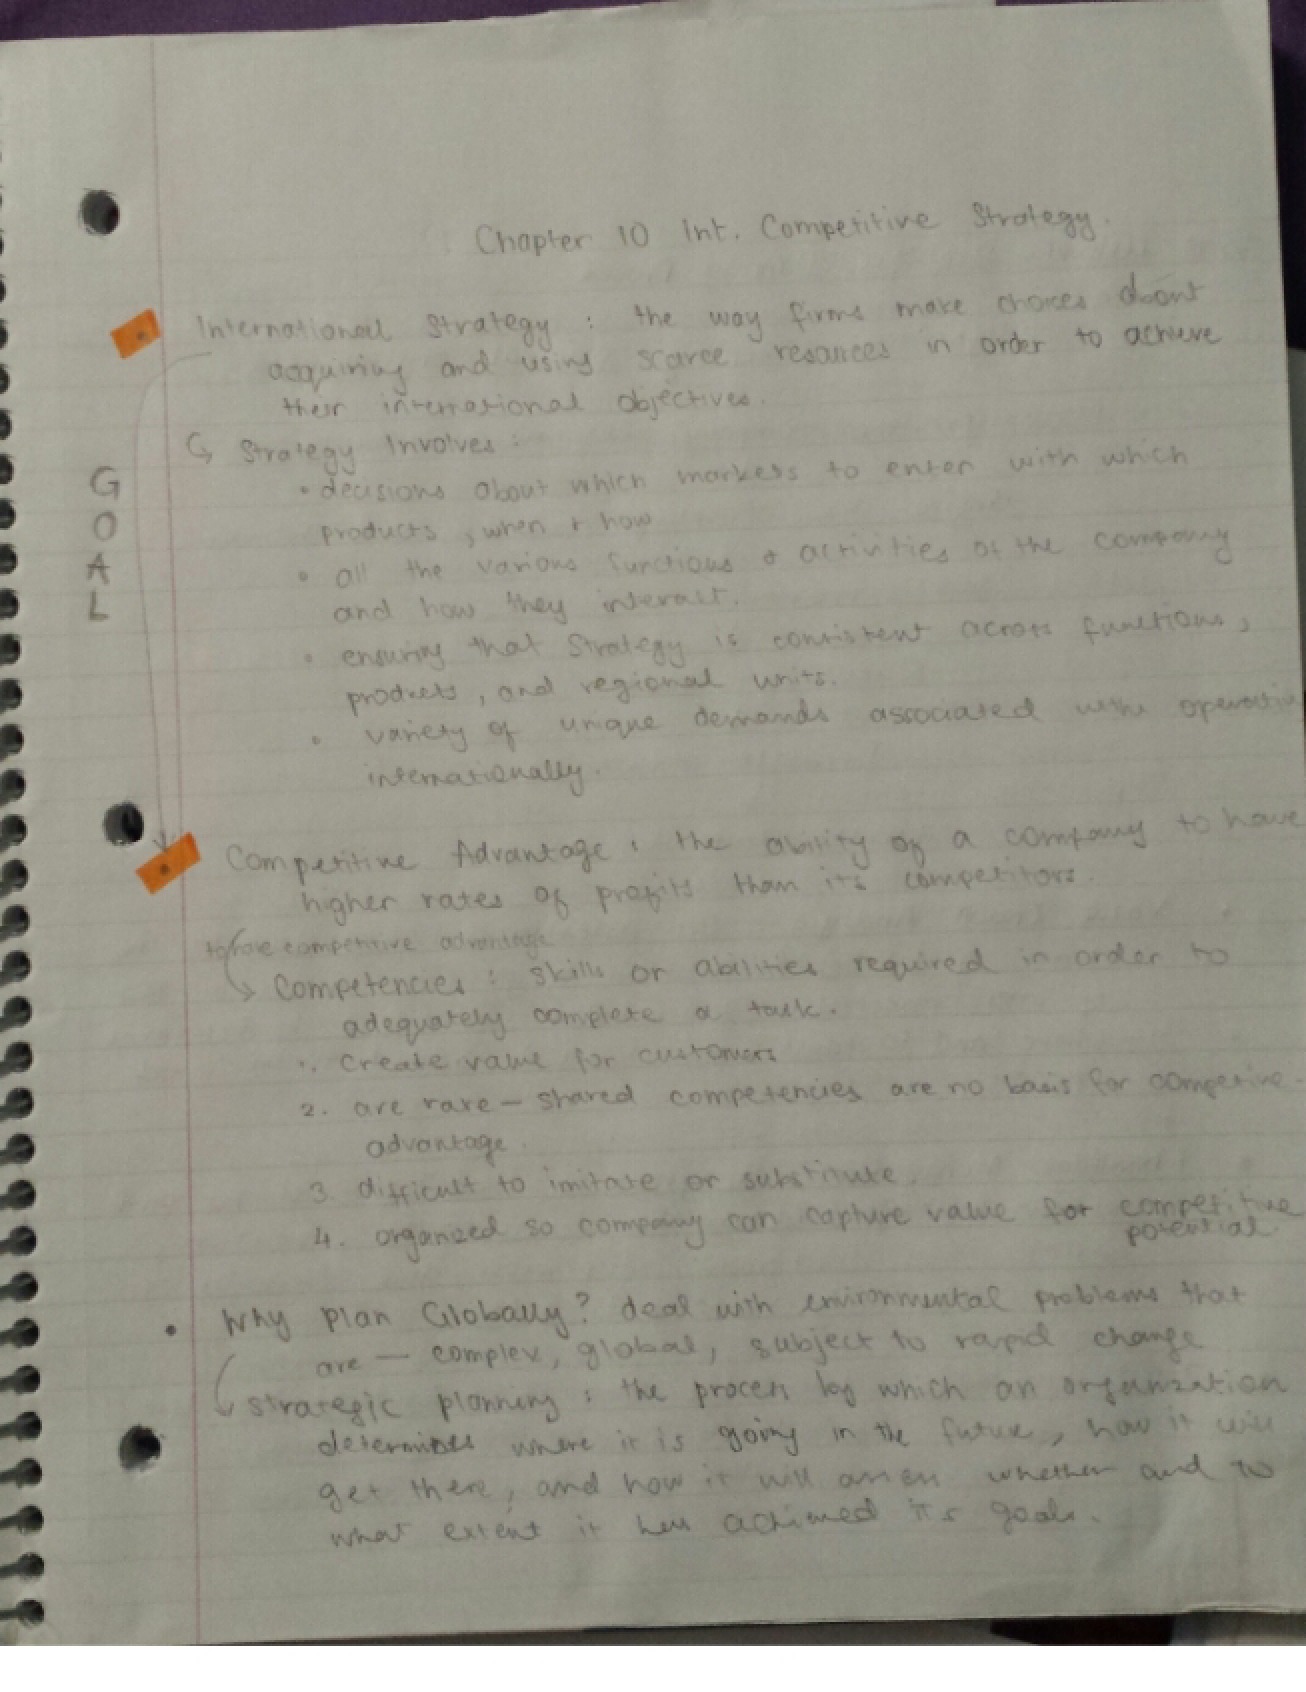 Chapter 10 Int. Competitive Strategy.
International Strategy : the way firms make choices about
acquiring and using scarce resources in order to achieve
their international objectives.
↳ Strategy Involves :
• decisions about which markets to enter with which
products, when & how
• all the various functions & activities of the company
and how they interact.
• ensuring that Strategy is consistent across functions,
products, and regional units.
• variety of unique demands associated with operating
internationally.
G
O
A
L
Competitive Advantage : the ability of a company to have
higher rates of profits than its competitors.
to have competitive advantage
↳ Competencies : skills or abilities required in order to
adequately complete a task.
1. create value for customers
2. are rare — shared competencies are no basis for competive
advantage.
3. difficult to imitate or substitute.
4. organized so company can capture value for competitive
potential.
• Why plan Globally? deal with environmental problems that
are — complex, global, subject to rapid change
↳ strategic planning : the process by which an organization
determines where it is going in the future, how it will
get there, and how it will assess whether and to
what extent it has achieved its goals.